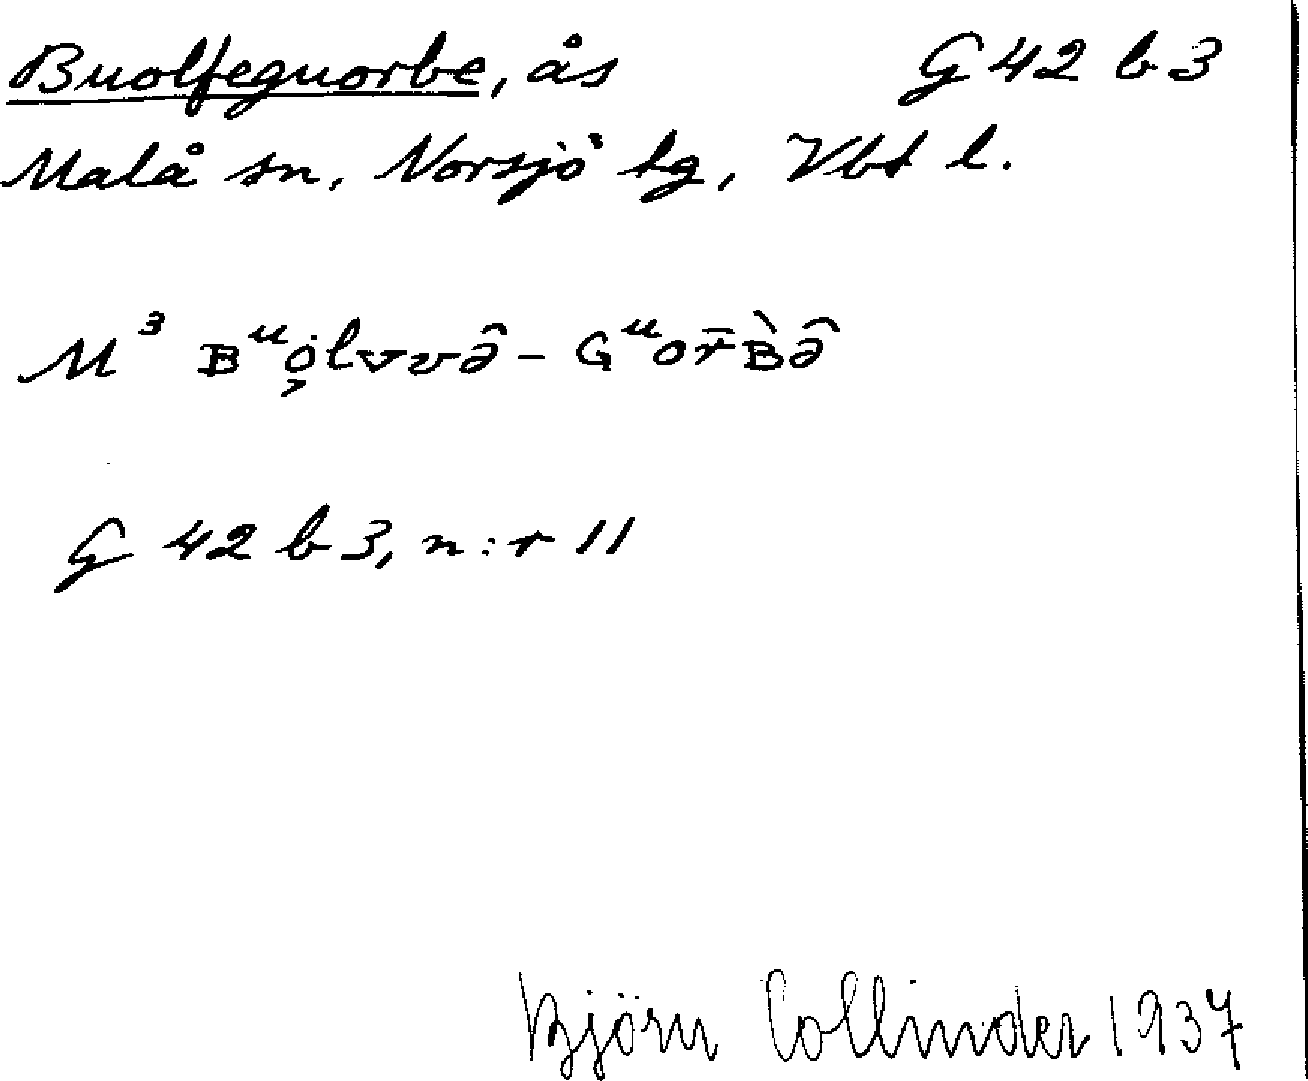 Buolfeguorbe, ås G 42 b 3
Malå sn, Norsjö tg, Vbt l.
M³ ʙᵘọ̇lvvə̑ - ɢᵘor̄ʙ̀ə̑
G 42 b 3, n:r 11
Björn Collinder 1937